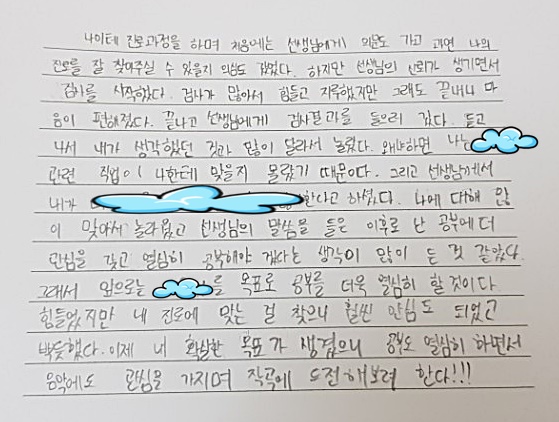 나이테 진로과정을 하며 처음에는 선생님에게 의문도 가고 과연 나의
진로를 잘 찾아주실 수 있을지 의심도 갔었다. 하지만 선생님의 신뢰가 생기면서
검사를 시작했다. 검사가 많아서 힘들고 지루했지만 그래도 끝내니 마
음이 편해졌다. 끝나고 선생님에게 검사결과를 들으러 갔다. 듣고
나서 내가 생각했던 것과 많이 달라서 놀랐다. 왜냐하면 나는
관련 직업이 나한테 맞을지 몰랐기 때문이다. 그리고 선생님께서
내가 한다고 하셨다. 나에 대해 많
이 맞아서 놀라웠고 선생님의 말씀을 들은 이후로 난 공부에 더
관심을 갖고 열심히 공부해야 겠다는 생각이 많이 든 것 같았다.
그래서 앞으로는 를 목표로 공부를 더욱 열심히 할 것이다
힘들었지만 내 진로에 맞는 걸 찾으니 훨씬 안심도 되었고
뿌듯했다. 이제 내 확실한 목표가 생겼으니 공부도 열심히 하면서
음악에도 관심을 가지며 작곡에 도전해보려 한다!!!